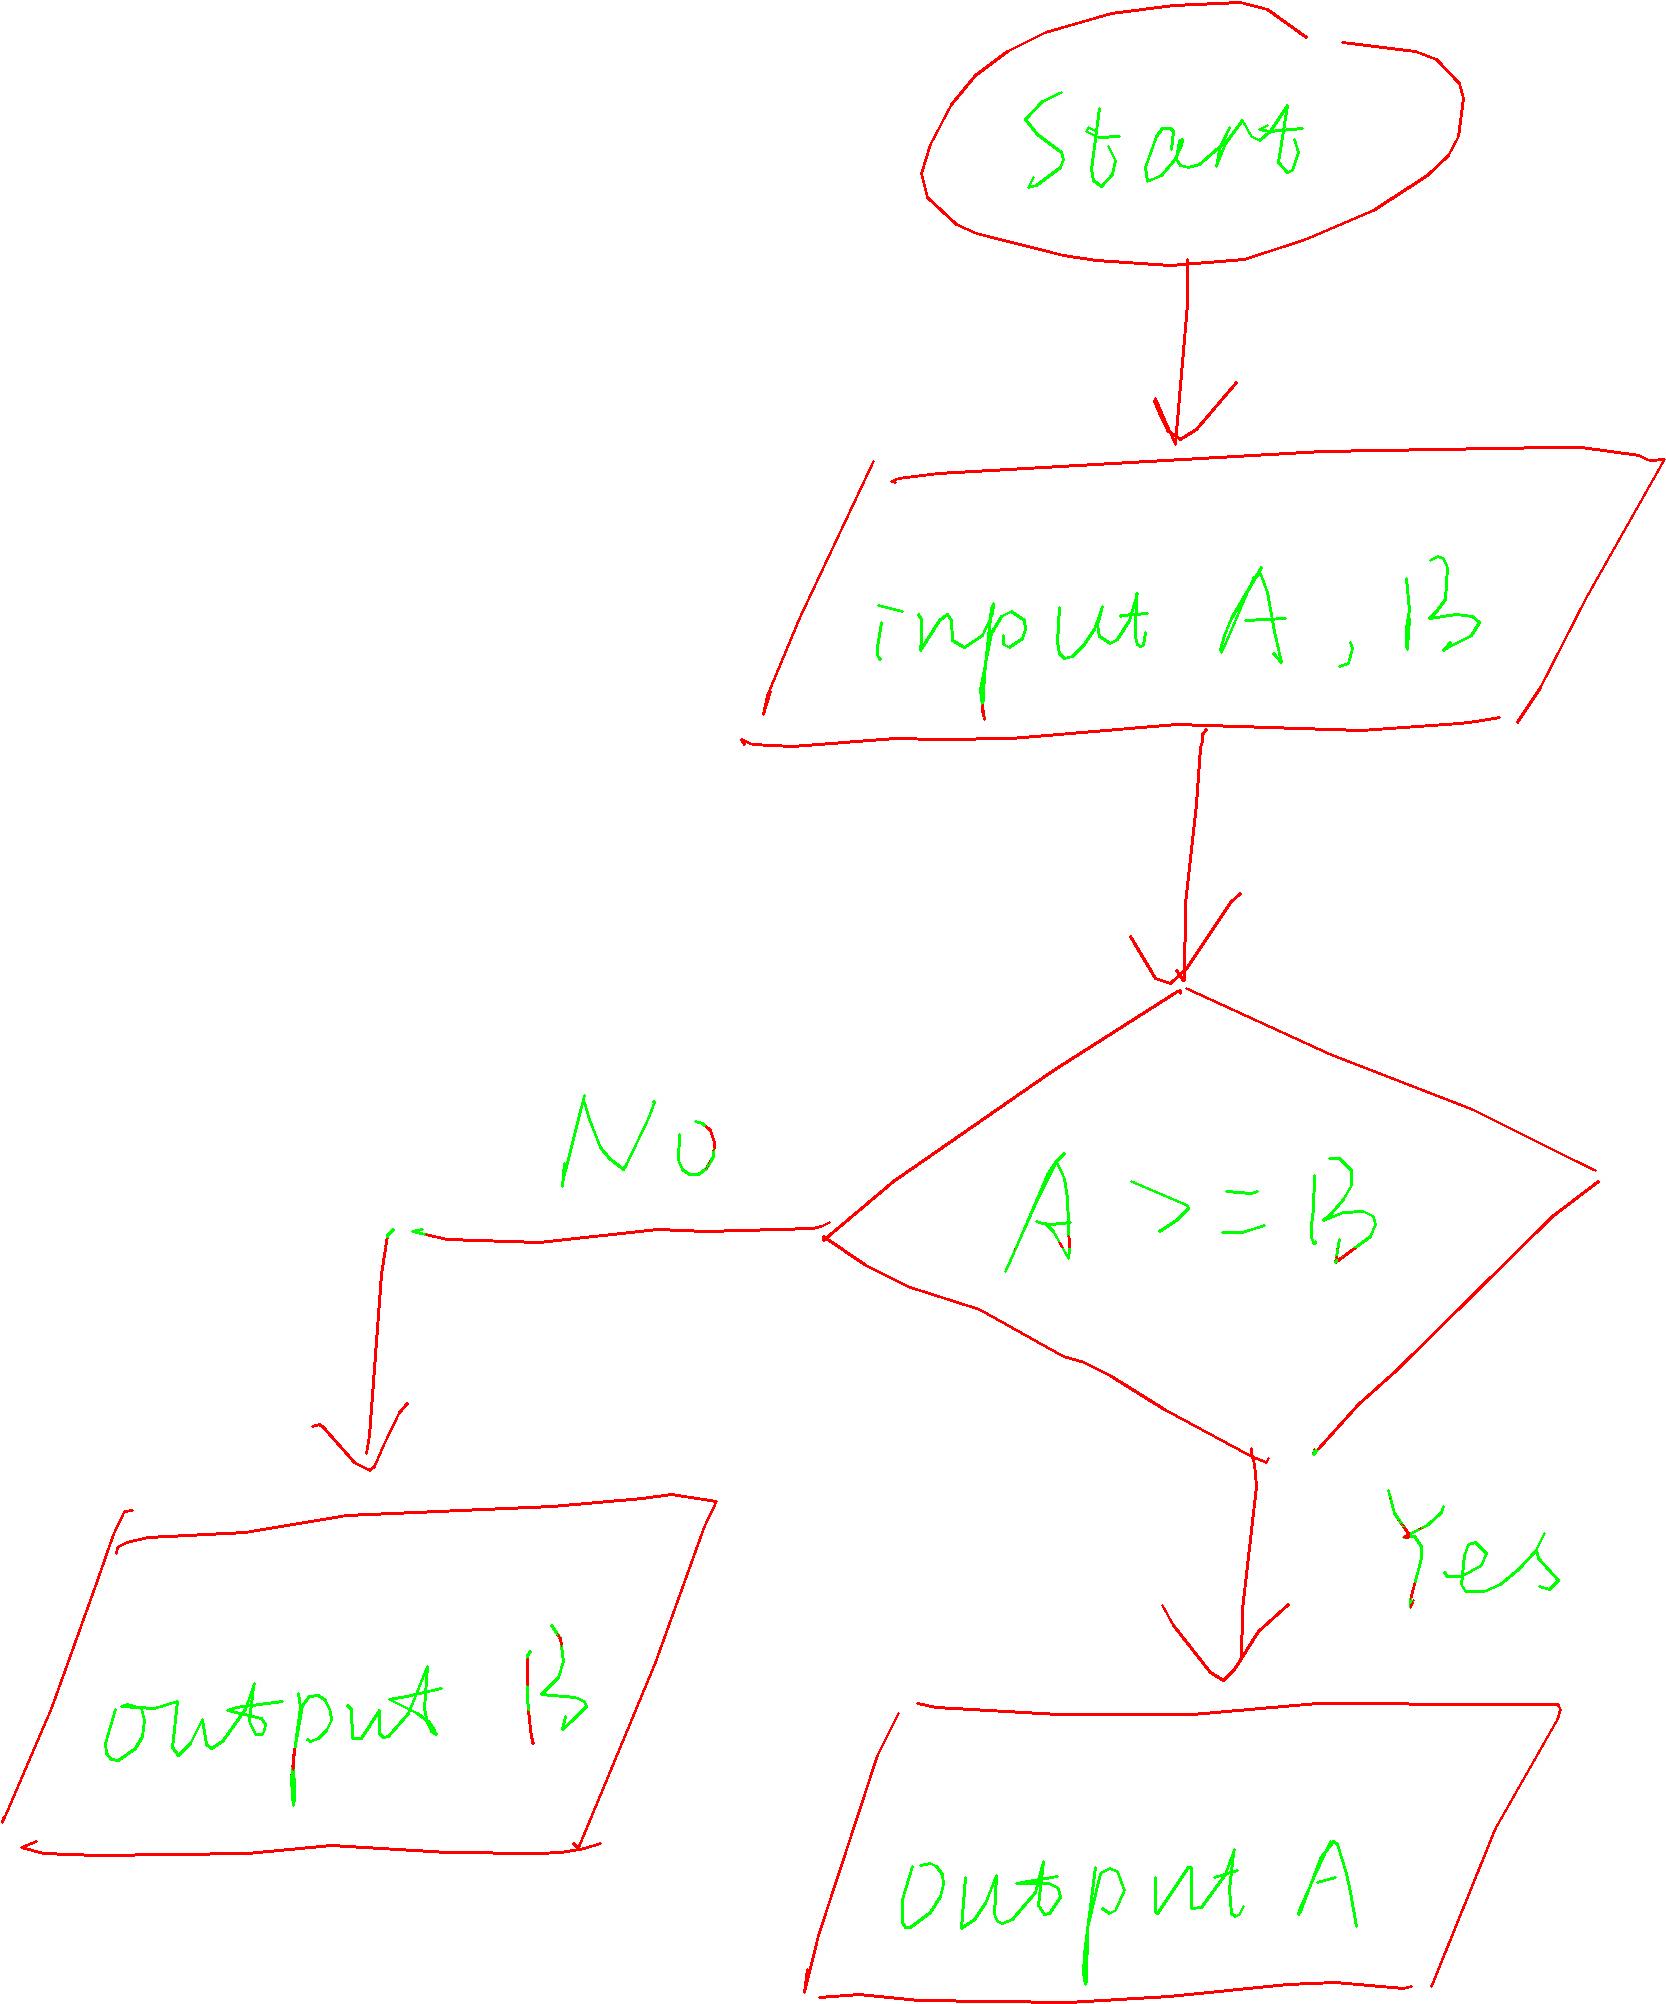 Start
input A, B
A >= B
No
Yes
output B
output A